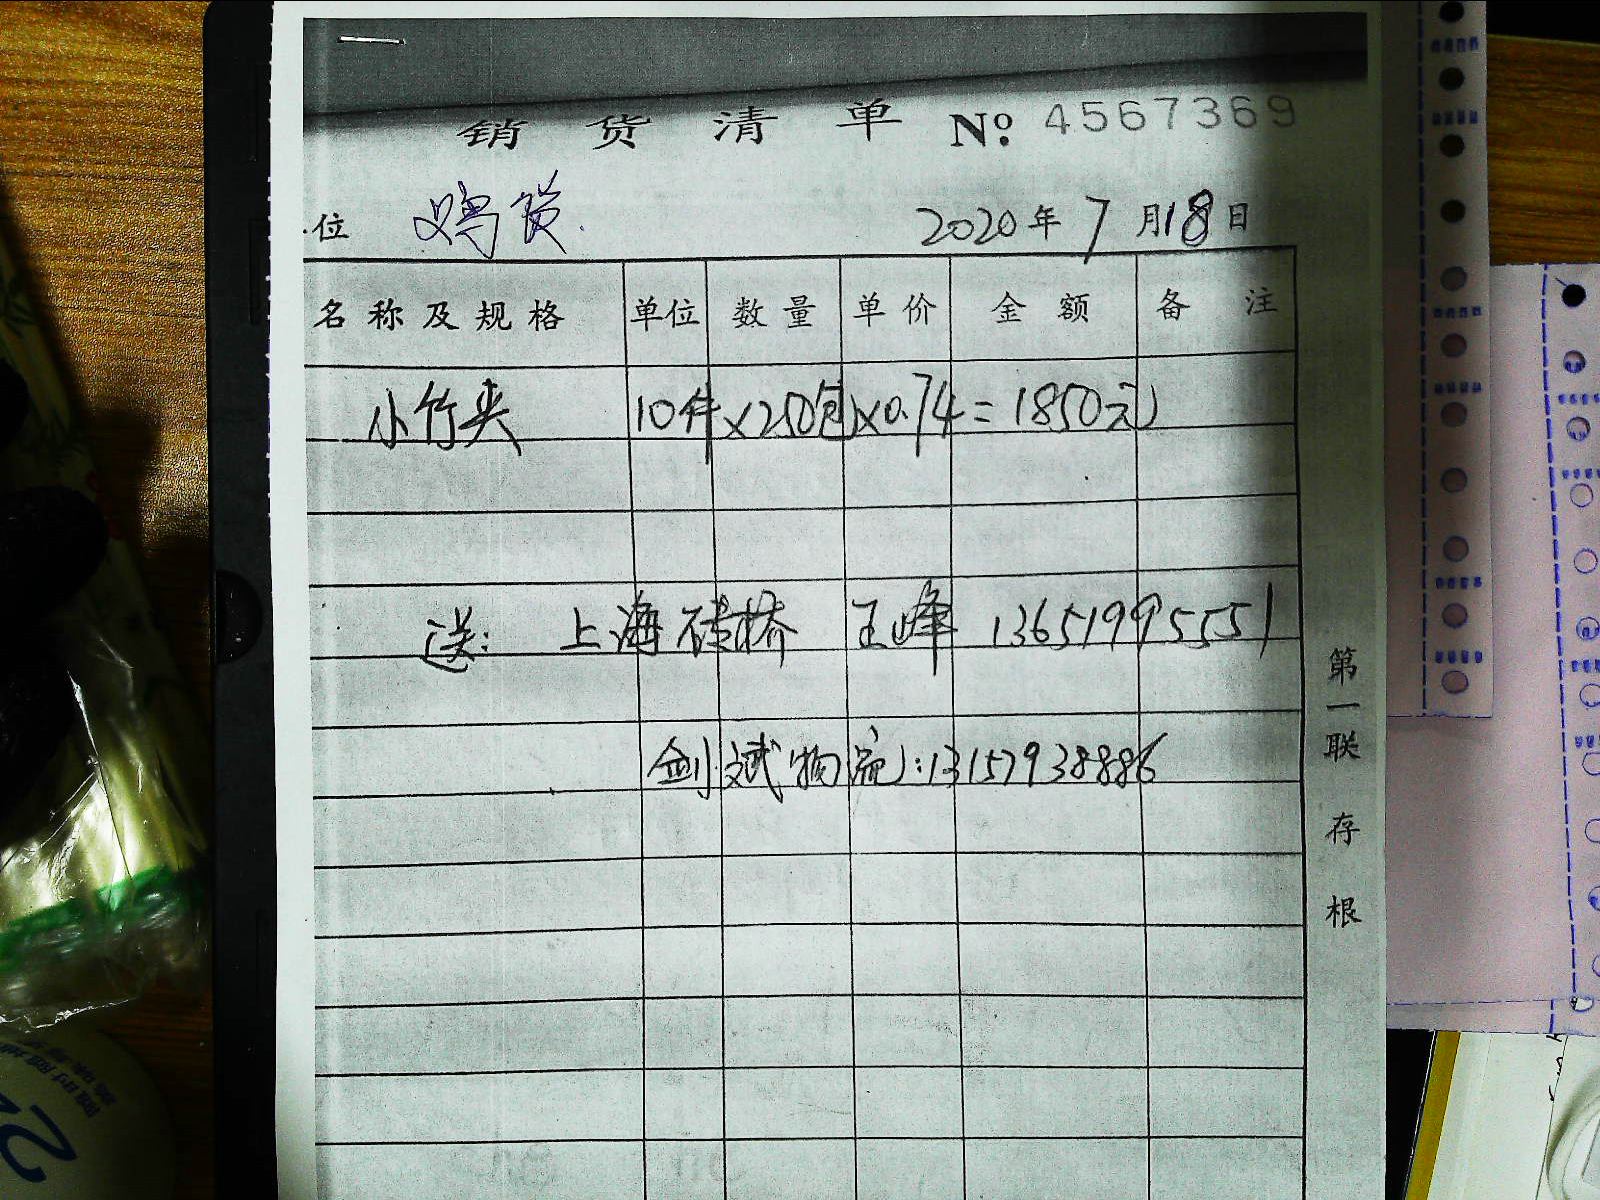 销货清单 Nº 4567369
位 鸡贸 2020年7月18日
名称及规格 单位 数量 单价 金额 备注
小竹夹 10件×250包×0.74=1850元
送: 上海砖桥 王峰 13651995551
剑斌物流:13157938886
第一联 存根